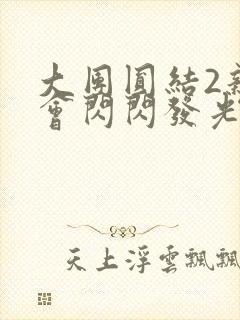 大團圓結2新
會閃閃發光
天上浮雲飄飄